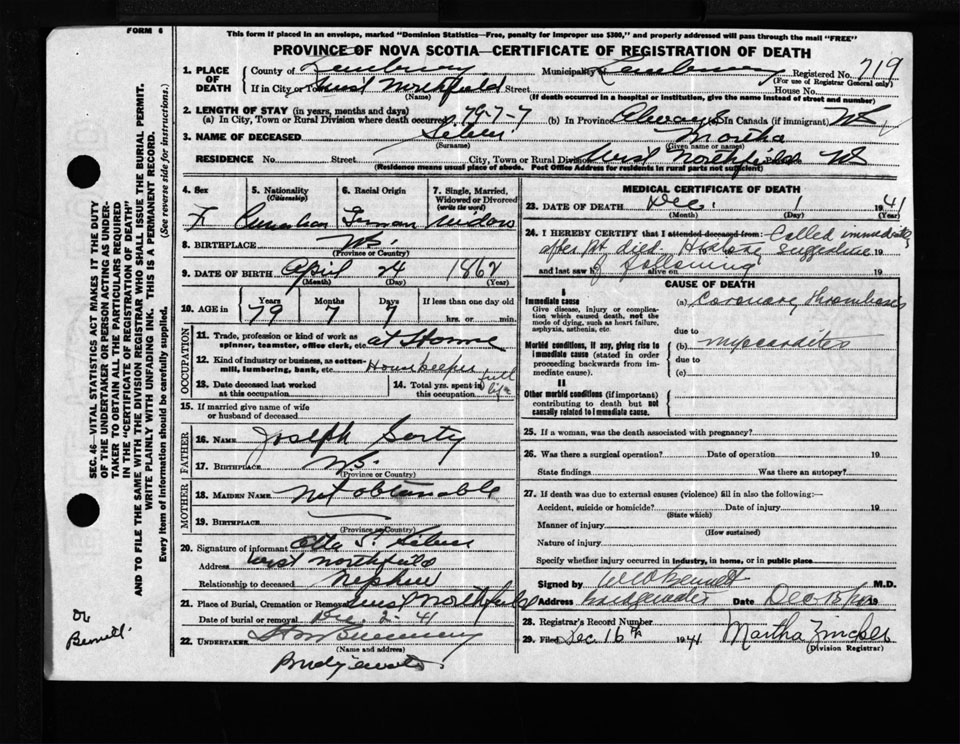 FORM 6
This form if placed in an envelope, marked "Dominion Statistics—Free, penalty for improper use $300," and properly addressed will pass through the mail "FREE"
PROVINCE OF NOVA SCOTIA—CERTIFICATE OF REGISTRATION OF DEATH
1. PLACE OF DEATH
County of Lunenburg Municipality Lunenburg Registered No. 719
(For use of Registrar General only)
If in City or Town West Northfield Street House No.
(If death occurred in a hospital or institution, give the name instead of street and number)
2. LENGTH OF STAY (in years, months and days)
(a) In City, Town or Rural Division where death occurred 79-7-7 (b) In Province Always (c) In Canada (if immigrant)
3. NAME OF DECEASED Martha
(Surname) (Given name or names)
RESIDENCE No. Street City, Town or Rural Division West Northfield NS
(Residence means usual place of abode. Post Office Address for residents in rural parts not sufficient)
4. Sex F
5. Nationality (Citizenship) Canadian
6. Racial Origin German
7. Single, Married, Widowed or Divorced (write the word) Widow
8. BIRTHPLACE N.S.
(Province or Country)
9. DATE OF BIRTH April 24 1862
(Month) (Day) (Year)
10. AGE Years 79 Months 7 Days 7 If less than one day old
hrs. or min.
OCCUPATION
11. Trade, profession or kind of work as spinner, teamster, office clerk, etc. at Home
12. Kind of industry or business, as cotton-mill, lumbering, bank, etc. Housekeeper
13. Date deceased last worked at this occupation
14. Total yrs. spent in this occupation life
15. If married give name of wife or husband of deceased
FATHER
16. NAME Joseph
17. BIRTHPLACE N.S.
(Province or Country)
MOTHER
18. MAIDEN NAME Not obtainable
19. BIRTHPLACE
(Province or Country)
20. Signature of informant
Address West Northfield
Relationship to deceased Nephew
21. Place of Burial, Cremation or Removal West Northfield
Date of burial or removal Dec. 2-41
22. UNDERTAKER
(Name and address)
Bridgewater
MEDICAL CERTIFICATE OF DEATH
23. DATE OF DEATH Dec. 1 1941
(Month) (Day) (Year)
24. I HEREBY CERTIFY that I attended deceased from: Called immediately
after pt died. History suggestive 19
and last saw h of following alive on 19
CAUSE OF DEATH
I
Immediate cause
Give disease, injury or complication which caused death, not the mode of dying, such as heart failure, asphyxia, asthenia, etc.
(a) Coronary thrombosis
due to
Morbid conditions, if any, giving rise to immediate cause (stated in order proceeding backwards from immediate cause).
(b) Myocarditis
due to
(c)
II
Other morbid conditions (if important) contributing to death but not causally related to immediate cause.
25. If a woman, was the death associated with pregnancy?
26. Was there a surgical operation? Date of operation 19
State findings Was there an autopsy?
27. If death was due to external causes (violence) fill in also the following:—
Accident, suicide or homicide? Date of injury 19
(State which)
Manner of injury
(How sustained)
Nature of injury
Specify whether injury occurred in industry, in home, or in public place
Signed by Bennett M.D.
Address Bridgewater Date Dec 15 19
28. Registrar's Record Number
29. Filed Dec 16th 1941 Martha
(Division Registrar)
SEC. 46—VITAL STATISTICS ACT MAKES IT THE DUTY
OF THE UNDERTAKER OR PERSON ACTING AS UNDER-
TAKER TO OBTAIN ALL THE PARTICULARS REQUIRED
IN THE "CERTIFICATE OF REGISTRATION OF DEATH"
AND TO FILE THE SAME WITH THE DIVISION REGISTRAR WHO SHALL ISSUE THE BURIAL PERMIT.
WRITE PLAINLY WITH UNFADING INK. THIS IS A PERMANENT RECORD.
Every item of Information should be carefully supplied. (See reverse side for instructions.)
Dr
Bennett